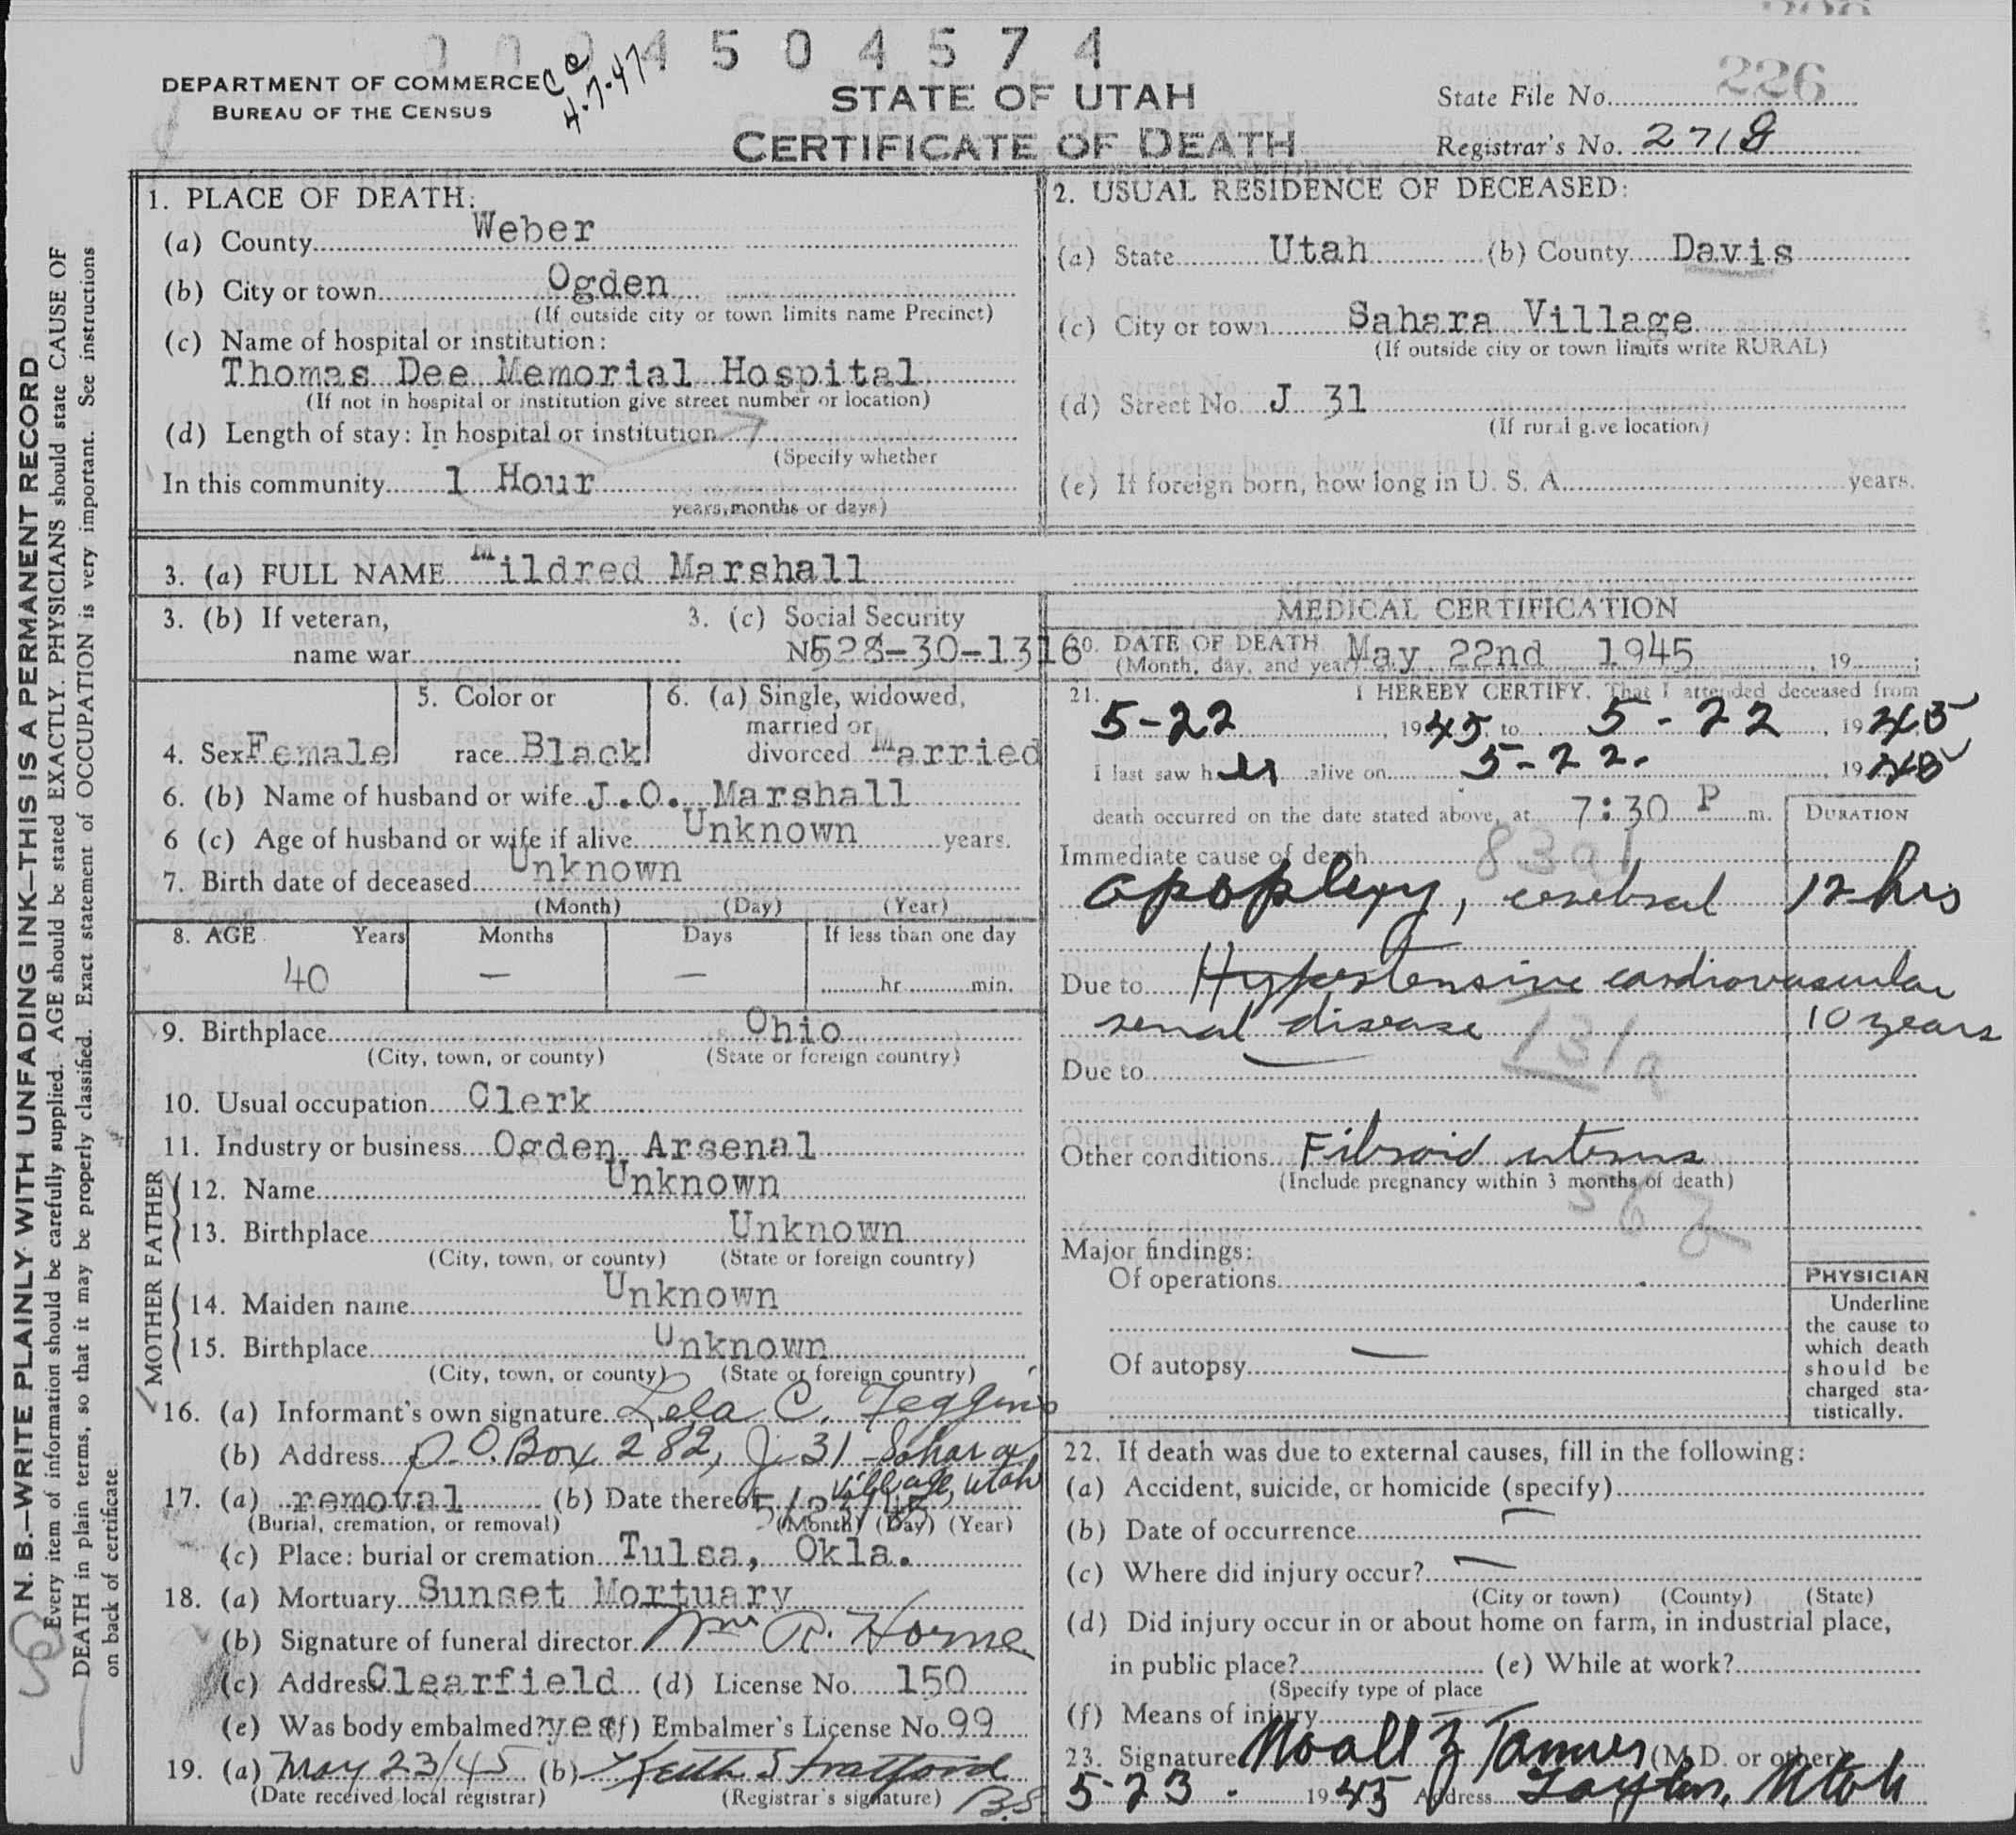 0004504574
DEPARTMENT OF COMMERCE
BUREAU OF THE CENSUS
Ce 4-7-47
STATE OF UTAH
CERTIFICATE OF DEATH
State File No. 226
Registrar's No. 2718
N. B.—WRITE PLAINLY WITH UNFADING INK—THIS IS A PERMANENT RECORD
Every item of information should be carefully supplied. AGE should be stated EXACTLY. PHYSICIANS should state CAUSE OF
DEATH in plain terms, so that it may be properly classified. Exact statement of OCCUPATION is very important. See instructions
on back of certificate
1. PLACE OF DEATH:
(a) County Weber
(b) City or town Ogden
(If outside city or town limits name Precinct)
(c) Name of hospital or institution:
Thomas Dee Memorial Hospital
(If not in hospital or institution give street number or location)
(d) Length of stay: In hospital or institution
(Specify whether
In this community 1 Hour
years, months or days)
2. USUAL RESIDENCE OF DECEASED:
(a) State Utah (b) County Davis
(c) City or town Sahara Village
(If outside city or town limits write RURAL)
(d) Street No. J 31
(If rural give location)
(e) If foreign born, how long in U. S. A. years.
3. (a) FULL NAME Mildred Marshall
3. (b) If veteran,
name war
3. (c) Social Security
No 528-30-1316
4. Sex Female
5. Color or
race Black
6. (a) Single, widowed,
married or
divorced Married
6. (b) Name of husband or wife J.O. Marshall
6 (c) Age of husband or wife if alive Unknown years.
7. Birth date of deceased Unknown
(Month) (Day) (Year)
8. AGE Years Months Days If less than one day
40 — — hr. min.
9. Birthplace Ohio
(City, town, or county) (State or foreign country)
10. Usual occupation Clerk
11. Industry or business Ogden Arsenal
FATHER
12. Name Unknown
13. Birthplace Unknown
(City, town, or county) (State or foreign country)
MOTHER
14. Maiden name Unknown
15. Birthplace Unknown
(City, town, or county) (State or foreign country)
16. (a) Informant's own signature Lela C. Feggins
(b) Address P.O. Box 282, J 31 Sahara
Village, Utah
17. (a) removal (b) Date thereof 5/23/45
(Burial, cremation, or removal) (Month) (Day) (Year)
(c) Place: burial or cremation Tulsa, Okla.
18. (a) Mortuary Sunset Mortuary
(b) Signature of funeral director Wm R. Horne
(c) Address Clearfield (d) License No. 150
(e) Was body embalmed? yes (f) Embalmer's License No. 99
19. (a) May 23/45 (b) Keith Stratford
(Date received local registrar) (Registrar's signature) B.S.
MEDICAL CERTIFICATION
20. DATE OF DEATH May 22nd 1945, 19 ;
(Month, day, and year)
21. I HEREBY CERTIFY, That I attended deceased from
5-22, 1945, to 5-22, 1945
I last saw her alive on 5-22, 1945
death occurred on the date stated above, at 7:30 P m.
DURATION
Immediate cause of death 83a1
apoplexy, cerebral 12 hrs
Due to Hypertensive cardiovascular
renal disease 10 years
131a
Due to
Other conditions Fibroid uterus
(Include pregnancy within 3 months of death)
Major findings:
Of operations
Of autopsy —
PHYSICIAN
Underline
the cause to
which death
should be
charged sta-
tistically.
22. If death was due to external causes, fill in the following:
(a) Accident, suicide, or homicide (specify)
(b) Date of occurrence —
(c) Where did injury occur? —
(City or town) (County) (State)
(d) Did injury occur in or about home on farm, in industrial place,
in public place? (e) While at work?
(Specify type of place
(f) Means of injury
23. Signature Noall Z Tanner (M.D. or other)
5-23- 1945 Address Layton, Utah